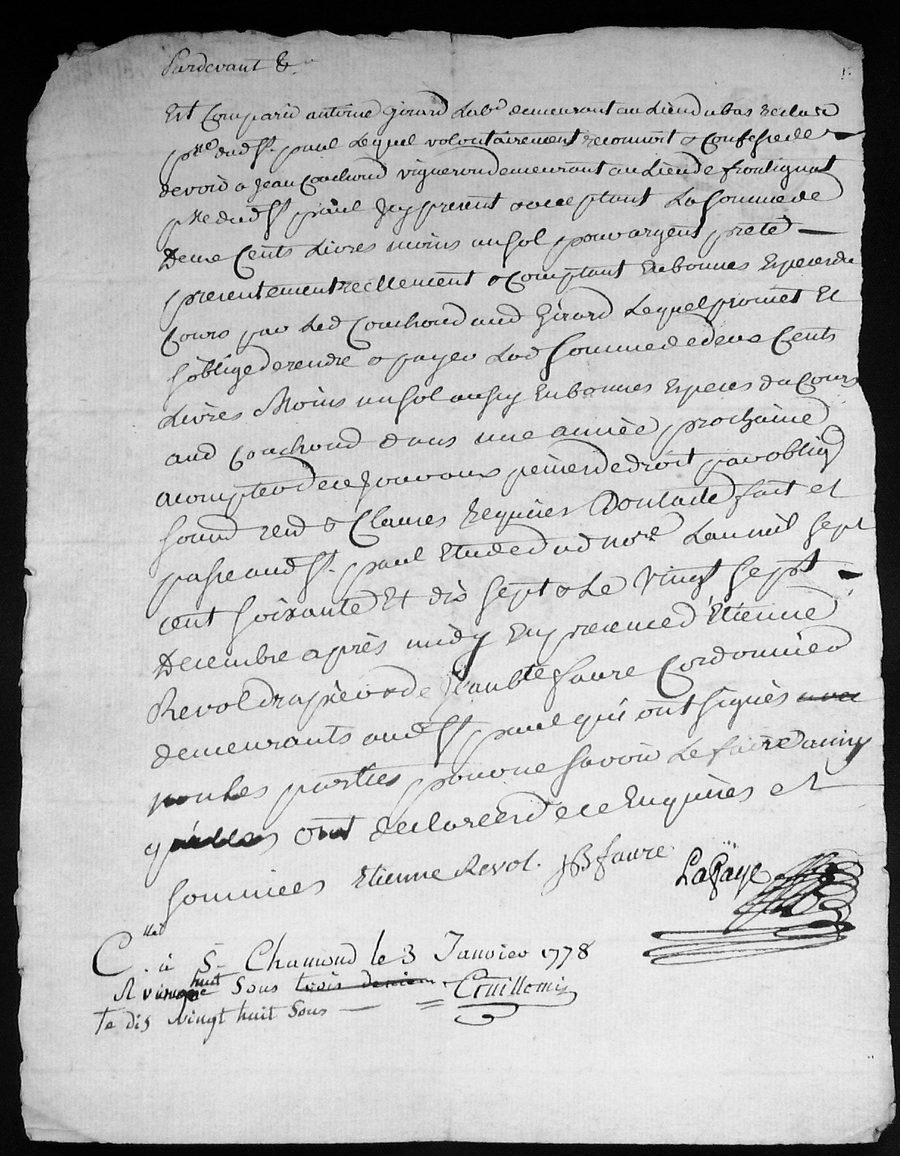 Pardevant &.
Est Comparu antoine girard Labr demeurant au Lieu du bas Recluse
psse dud St. paul Lequel volontairement reconnoit & Confesse de
devoir a Jean Couchoud vigneron demeurant au Lieu de frontignat
psse dud St paul Icy present & acceptant La Somme de
Deux Cents Livres moins un sol pour argent preté
presentement reellement & Comptant En bonnes Especes du
Cours par Led Couchoud aud Girard Lequel promet Et
s'oblige de rendre & payer Lad Somme de deux Cents
Livres Moins un sol aussy En bonnes Especes du Cours
aud Couchoud dans une année prochaine
a compter de ce Jour aux peines de droit par oblig
soumd rend & Clauses Requises Dont acte fait et
passé aud St. paul Etude dud nore L'an mil sept
cent soixante Et dix sept & Le vingt sept
Decembre après midy En presence d'Etienne
Revol drapier & de Jean bte faure Cordonnier
demeurants aud St paul qui ont signés
non Les parties pour ne savoir Le faire ainsy
ont declaré de ce Enquises et
sommées Etienne Revol. JB faure Lafaÿe
C.llé à St Chamond le 3 Janvier 1778
R huit Sous trois deniers
Te dis vingt huit Sous